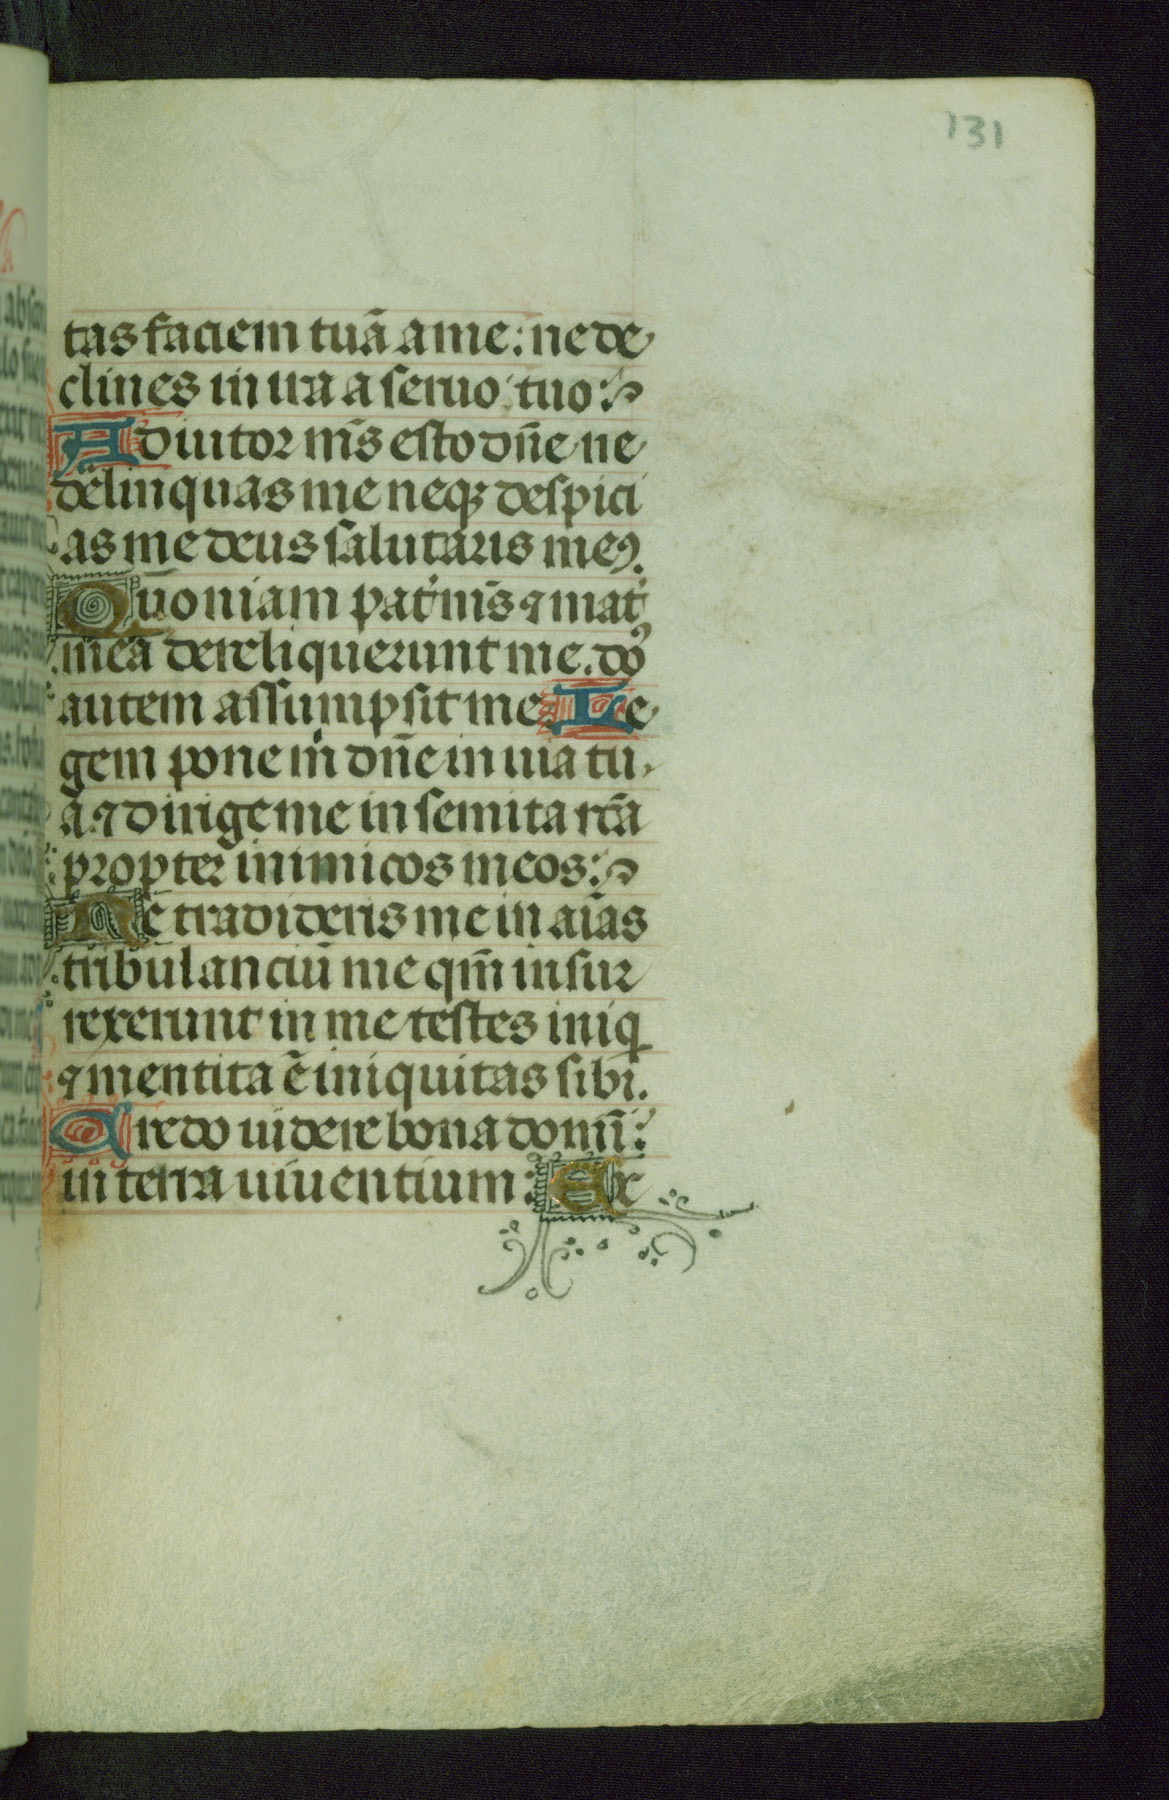 131
tas faciem tuā a me: ne de
clines in ira a seruo tuo:
Adiutor m̄s esto dn̄e ne
delinquas me neq; despici
as me deus salutaris me9.
Quoniam pat' m̄s ⁊ mat'
mea dereliquerunt me. do9
autem assumpsit me. Le
gem pone m̄ dn̄e in uia tu
a. ⁊ dirige me in semita rc̄a
propter inimicos meos:
Ne tradideris me in aīas
tribulanciū me qm̄ insur
rexerunt in me testes iniq
⁊ mentita ē iniquitas sibi.
Credo uidere bona domī:
in terra uiuentium: Ex